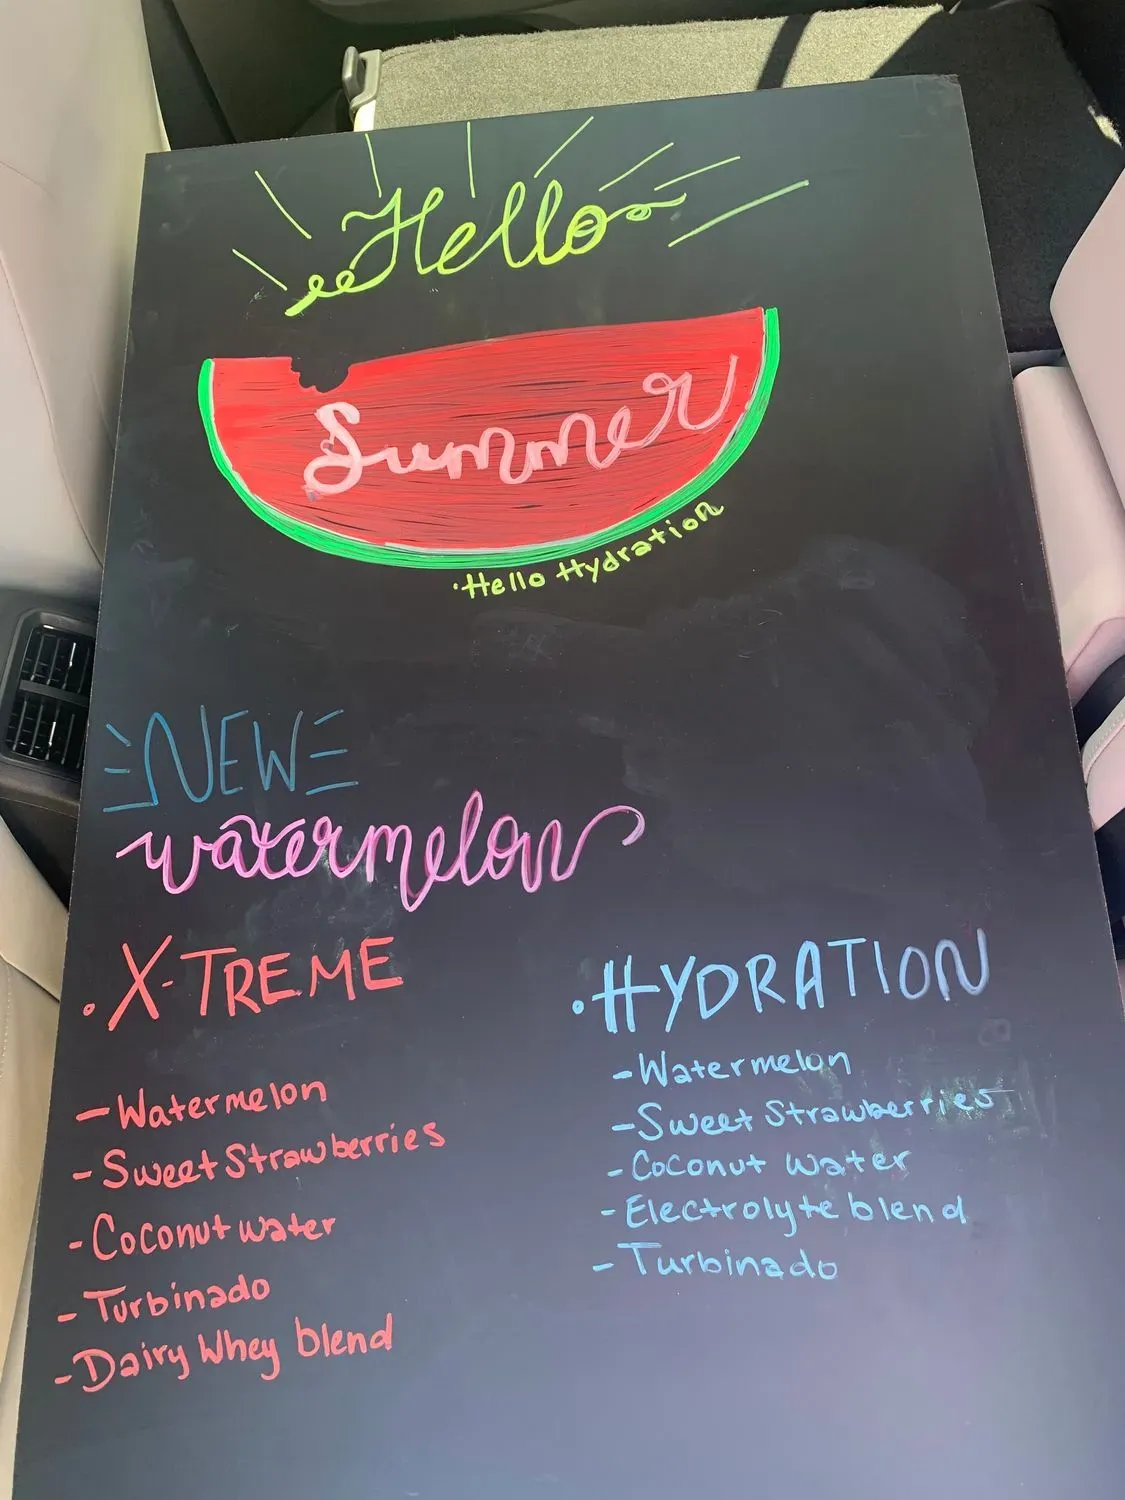 Hello
Summer
·Hello Hydration
NEW
watermelon
·X-TREME
-Watermelon
-Sweet Strawberries
-Coconut water
-Turbinado
-Dairy Whey blend
·HYDRATION
-Watermelon
-Sweet Strawberries
-Coconut water
-Electrolyte blend
-Turbinado